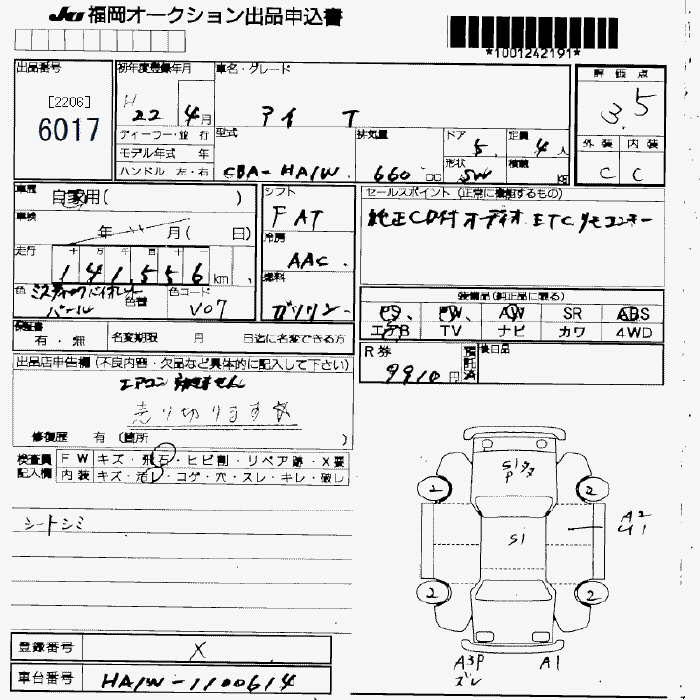 JU 福岡オークション出品申込書
*1001242191*
出品番号
[2206]
6017
初年度登録年月
H 22 4月
車名・グレード
アイ T
評価点
3.5
ディーラー・並行
モデル年式 年
ハンドル 左・右
型式
CBA-HA1W
排気量
660 cc
ドア
5
形状
SW
定員
4人
積載
kg
外装 内装
C C
車歴
自家用( )
車検
年 月( 日)
走行
十 万 千 百 十 一
141,556 km
色
ミスティックバイオレット
パール
色替
色コード
V07
シフト
F AT
冷房
AAC
燃料
ガソリン
セールスポイント (正常に機能するもの)
純正CD付オーディオ ETC リモコンキー
装備品(純正品に限る)
PS、 PW、 AW SR ABS
エアB TV ナビ カワ 4WD
保証書
有・無
名変期限 月 日迄に名変できる方
R券
9910円
預託済
後日品
出品店申告欄 (不良内容・欠品など具体的に記入して下さい)
エアコン効きません
売り切ります☆
修復歴 有 (箇所 )
検査員 FW キズ・飛石・ヒビ割・リペア跡・X要
記入欄 内装 キズ・汚レ・コゲ・穴・スレ・キレ・破レ
シートシミ
S1 タタ
P
2 2
S1
A2
U1
2 2
A3P
ズレ
A1
登録番号
X
車台番号
HA1W-1100614